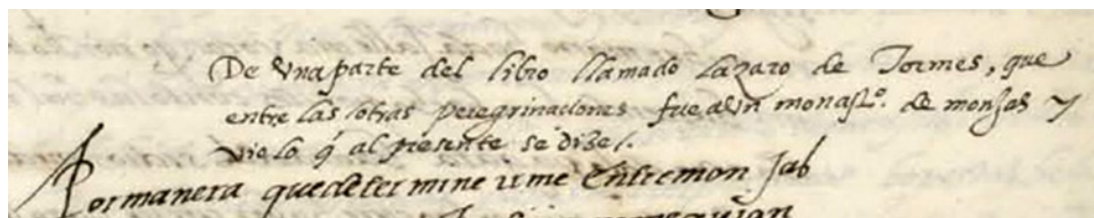 De una parte del libro llamado Lazaro de Tormes, que
entre las otras peregrinaciones fue a un monastº. de monjas y
vio lo q̃ al presente se dize/.
Por manera que determine irme entre monjas